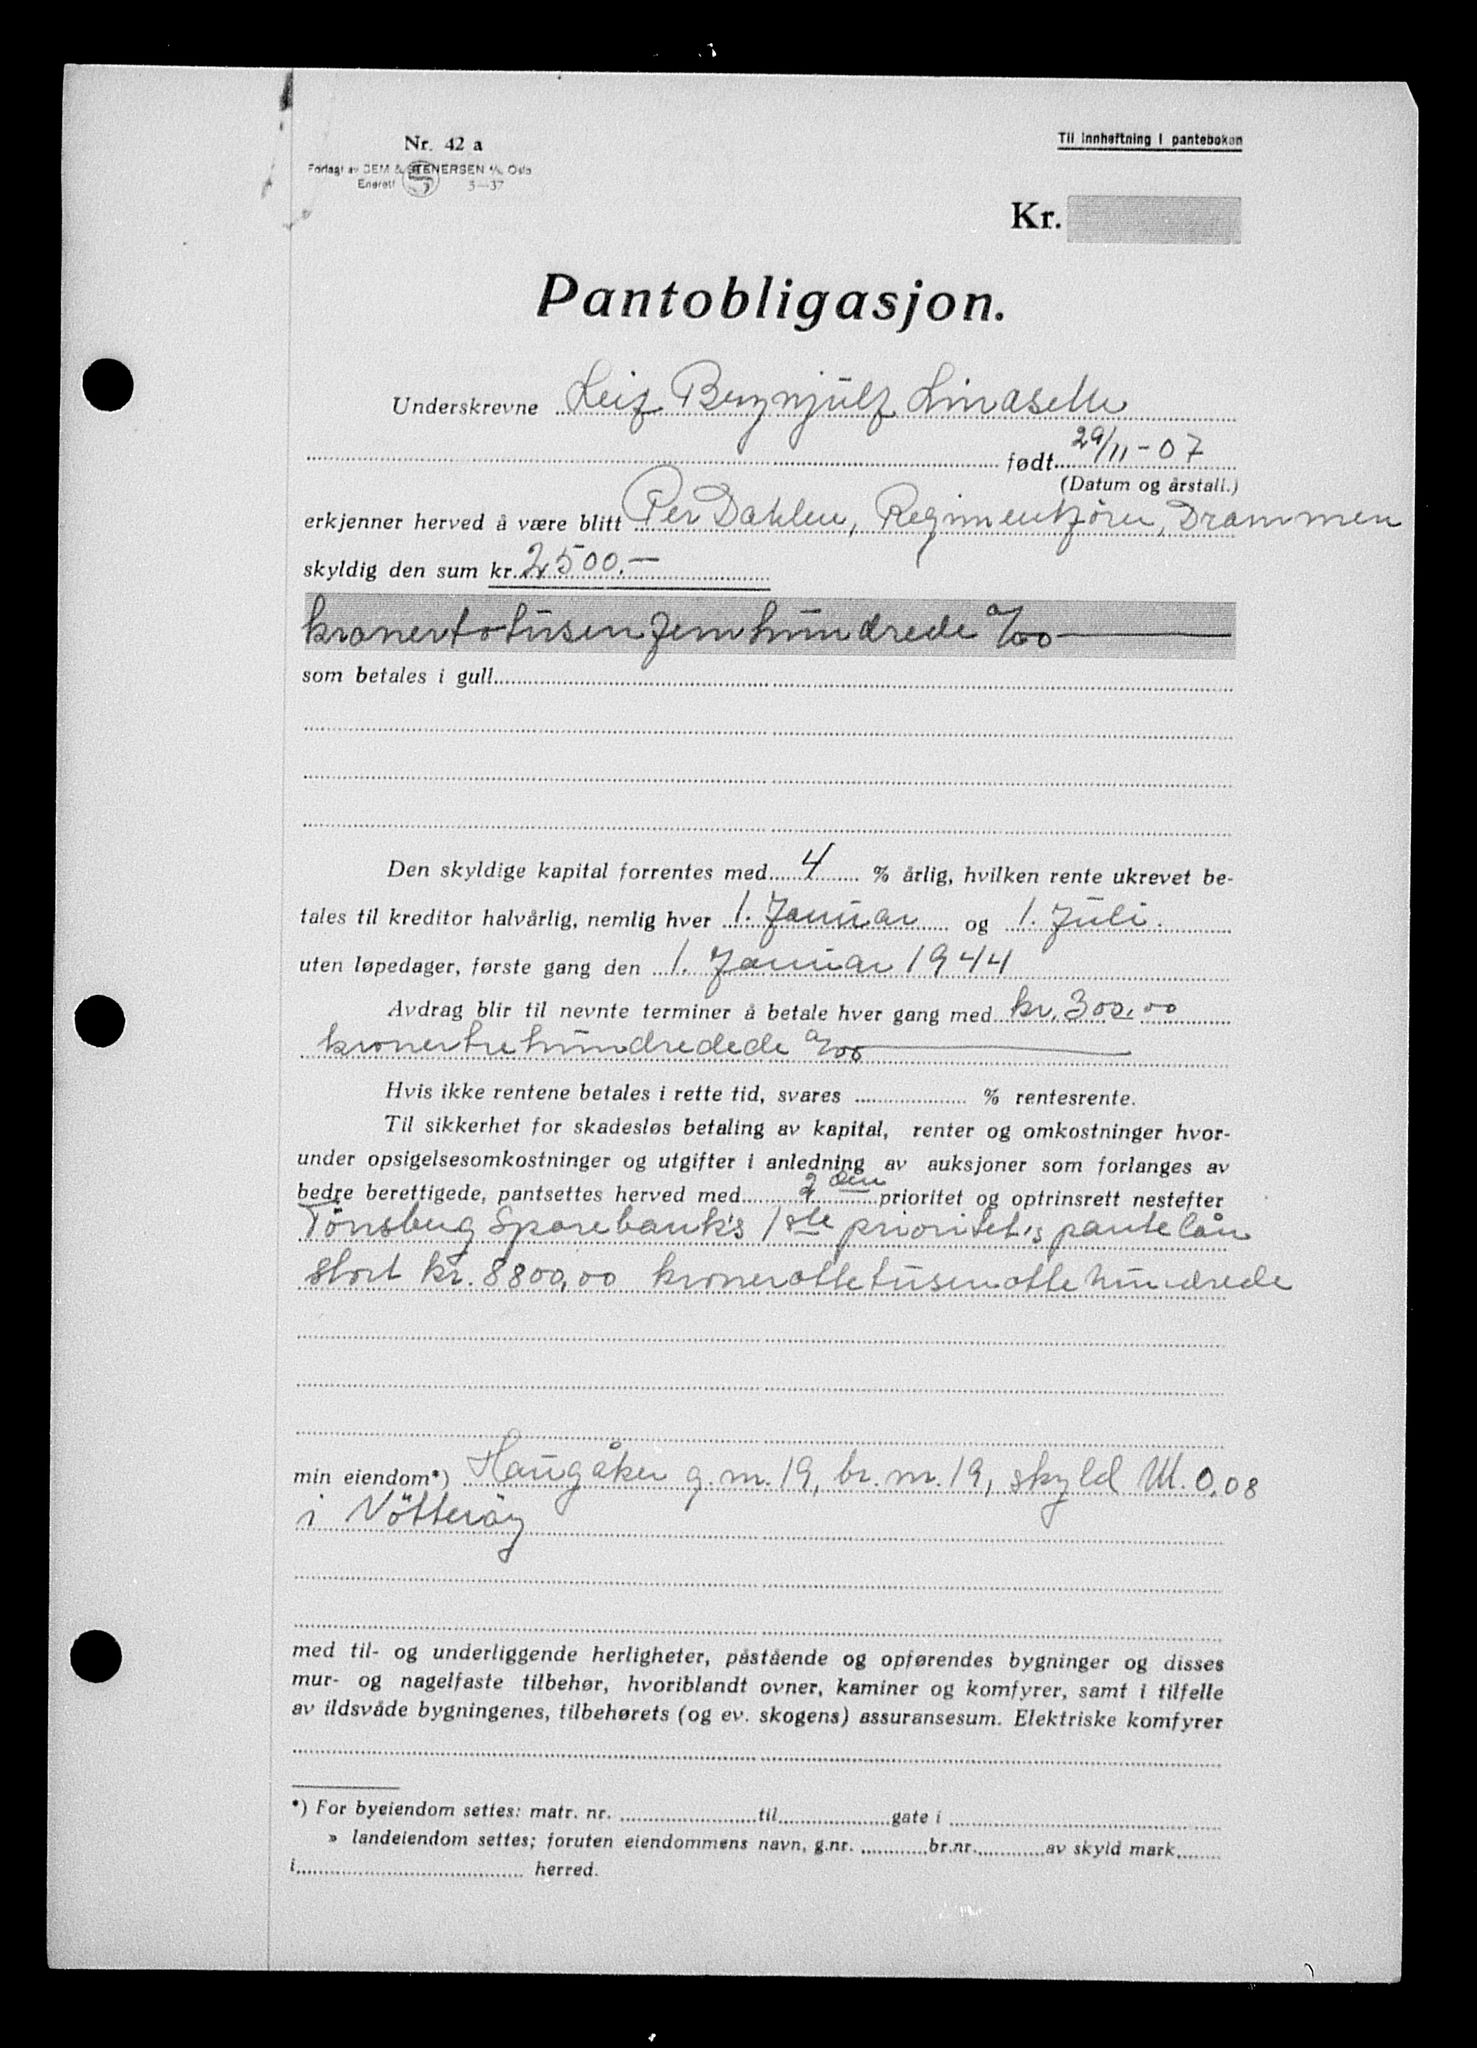 Nr. 42 a
Forlagt av SEM & STENERSEN A/S, Oslo
Enerett 3—37
Til innheftning i panteboken
Kr.
Pantobligasjon.
Underskrevne Leif Brynjulf
født 29/11-07
(Datum og årstall.)
erkjenner herved å være blitt Per Dahlen, Regimentkjører, Drammen
skyldig den sum kr. 2500.—
kroner totusenfemhundrede 0/00
som betales i gull
Den skyldige kapital forrentes med 4 % årlig, hvilken rente ukrevet be-
tales til kreditor halvårlig, nemlig hver 1. Januar og 1. Juli.
uten løpedager, første gang den 1. Januar 1944
Avdrag blir til nevnte terminer å betale hver gang med kr. 300.00
kroner trehundredede 0/00
Hvis ikke rentene betales i rette tid, svares % rentesrente.
Til sikkerhet for skadesløs betaling av kapital, renter og omkostninger hvor-
under opsigelsesomkostninger og utgifter i anledning av auksjoner som forlanges av
bedre berettigede, pantsettes herved med 2den prioritet og optrinsrett nestefter
Tönsberg Sparebank's 1ste prioritet's pantelån
stort kr. 8800,00 kroner ottetusenottehundrede
min eiendom*) Haugåker g.nr. 19, br.nr. 19, skyld M. 0,08
i Nötteröy
med til- og underliggende herligheter, påstående og opførendes bygninger og disses
mur- og nagelfaste tilbehør, hvoriblandt ovner, kaminer og komfyrer, samt i tilfelle
av ildsvåde bygningenes, tilbehørets (og ev. skogens) assuransesum. Elektriske komfyrer
*) For byeiendom settes: matr. nr. til gate i
» landeiendom settes; foruten eiendommens navn, g.nr. br.nr. av skyld mark
i herred.